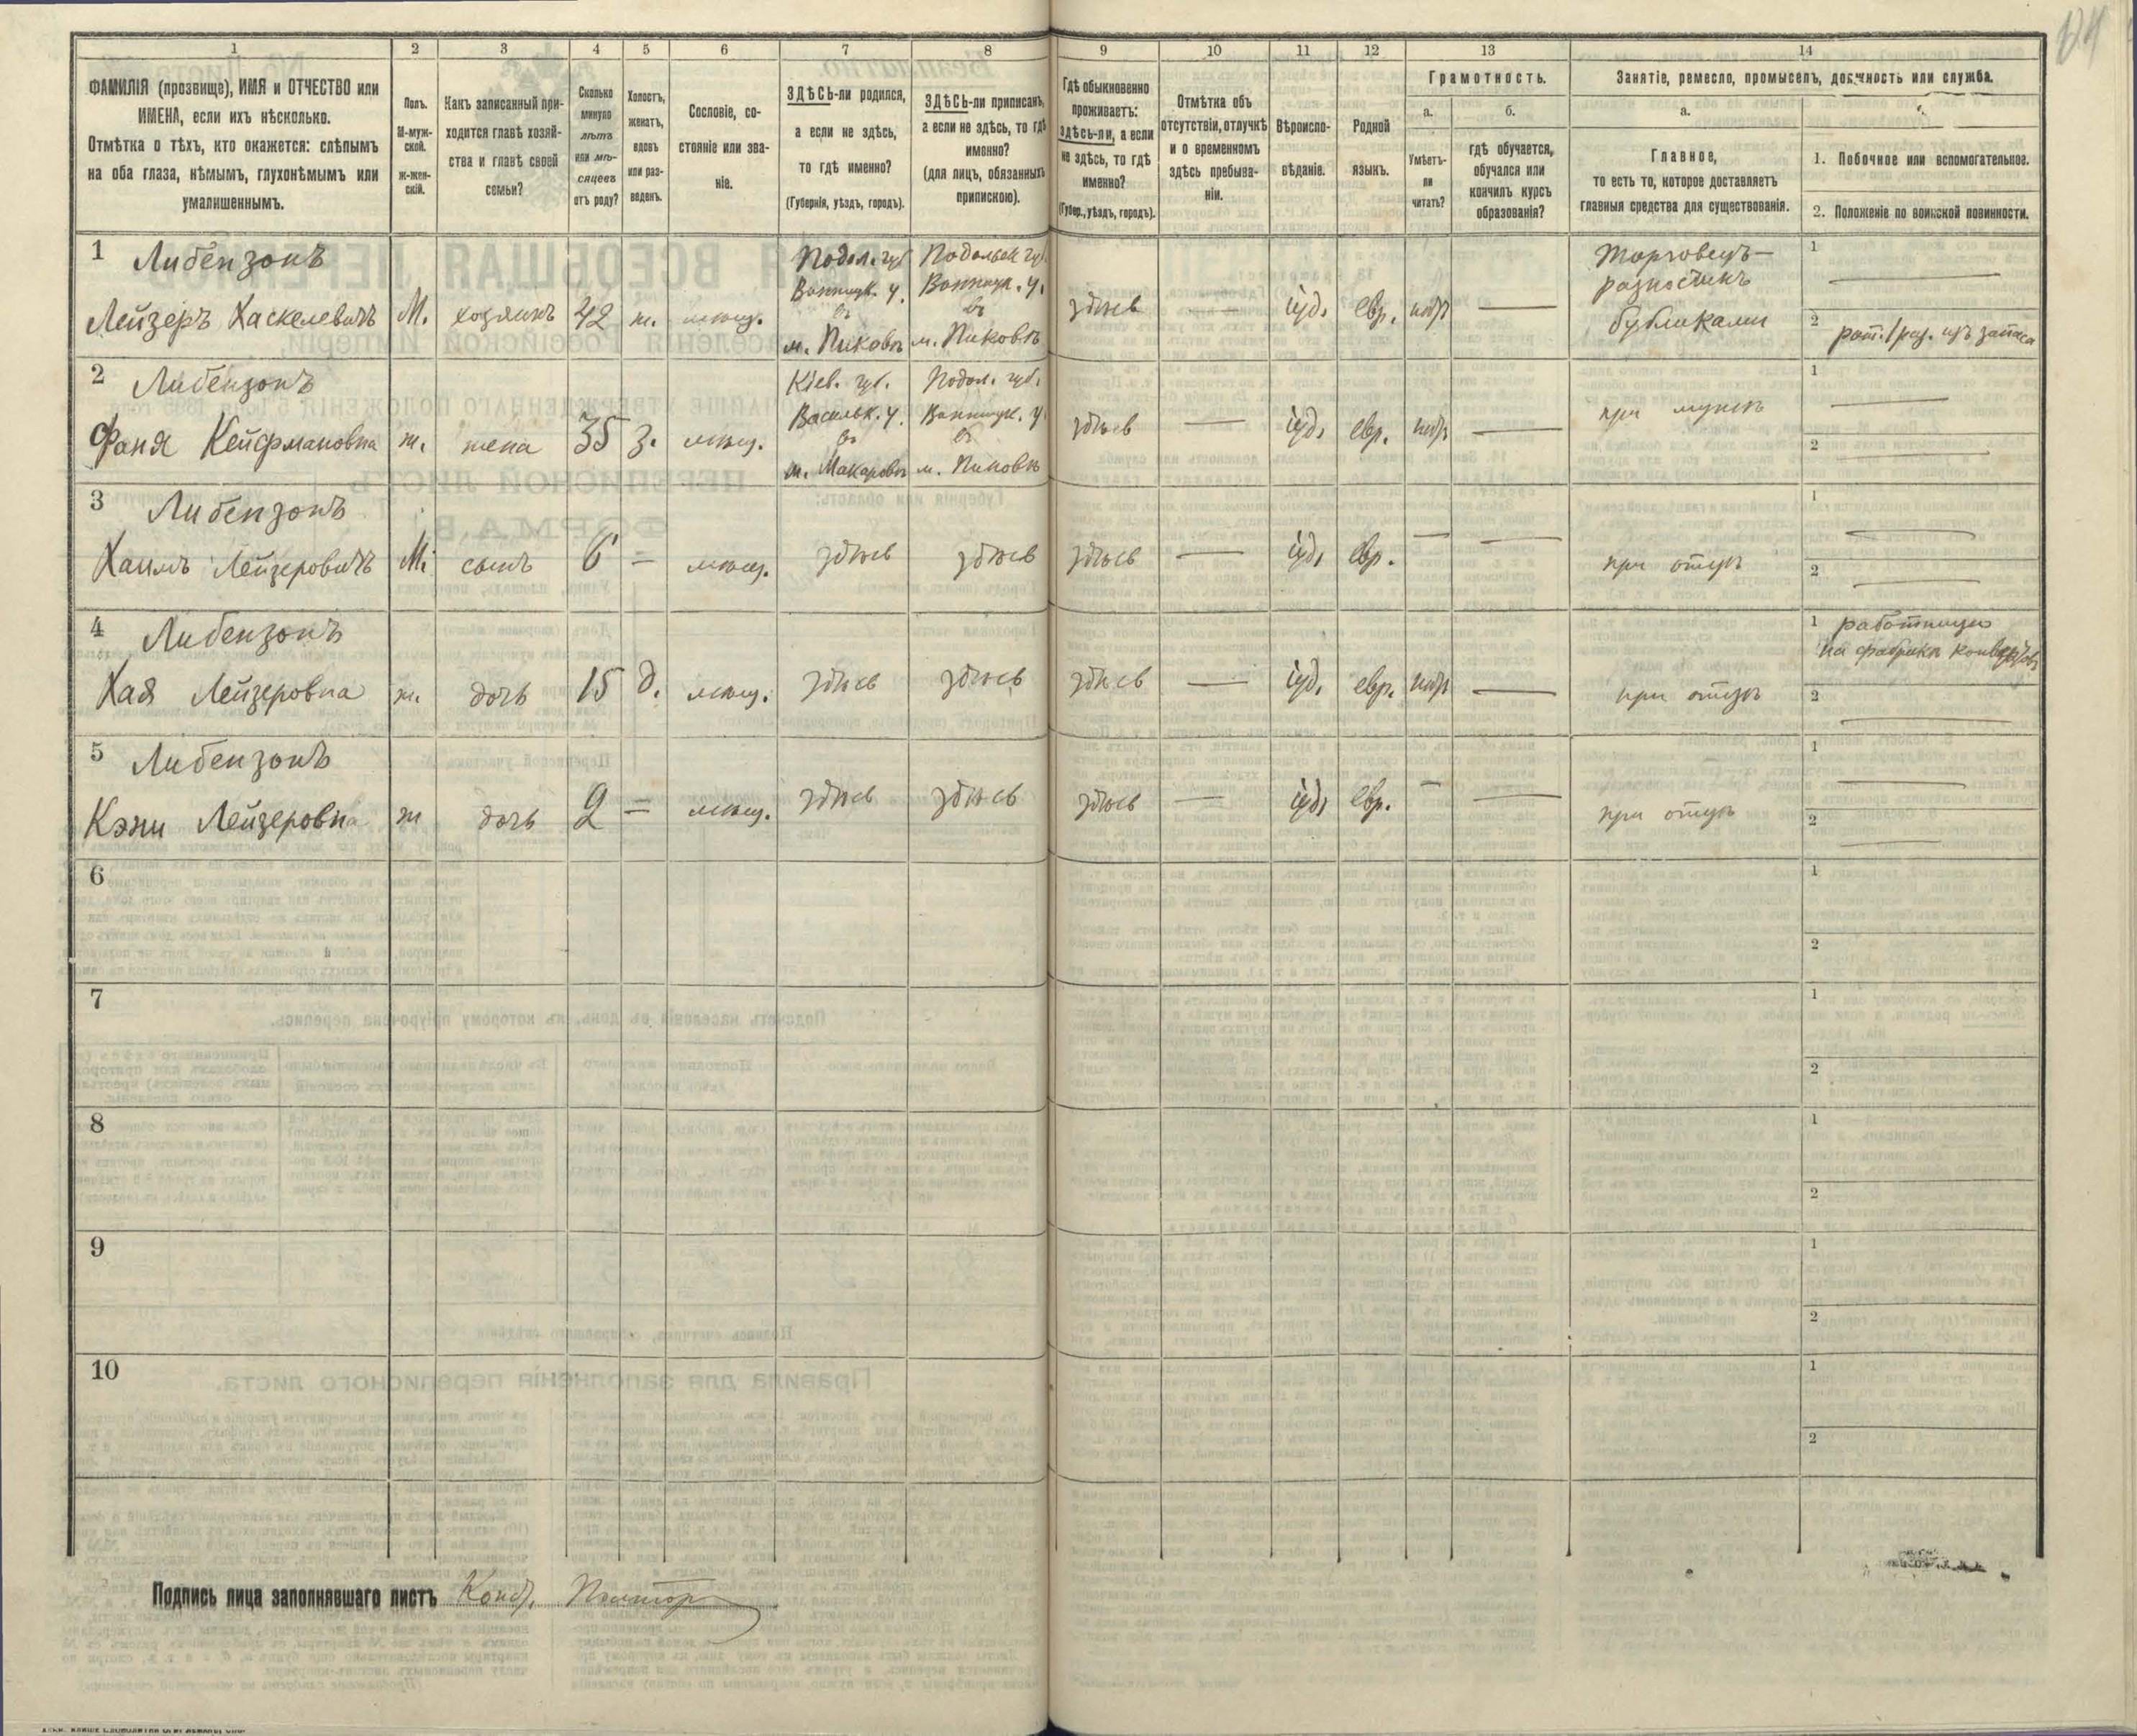 1 2 3 4 5 6 7 8 9 10 11 12 13 14
ФАМИЛІЯ (прозвище), ИМЯ и ОТЧЕСТВО или
ИМЕНА, если ихъ нѣсколько.
Отмѣтка о тѣхъ, кто окажется: слѣпымъ
на оба глаза, нѣмымъ, глухонѣмымъ или
умалишеннымъ.
Полъ.
М-муж-
ской.
ж-жен-
скій.
Какъ записанный при-
ходится главѣ хозяй-
ства и главѣ своей
семьи?
Сколько
минуло
лѣтъ
или мѣ-
сяцевъ
отъ роду?
Холостъ,
женатъ,
вдовъ
или раз-
веденъ.
Сословіе, со-
стояніе или зва-
ніе.
ЗДѢСЬ-ли родился,
а если не здѣсь,
то гдѣ именно?
(Губернія, уѣздъ, городъ).
ЗДѢСЬ-ли приписанъ,
а если не здѣсь, то гдѣ
именно?
(для лицъ, обязанныхъ
припискою).
Гдѣ обыкновенно
проживаетъ:
здѣсь-ли, а если
не здѣсь, то гдѣ
именно?
(Губер., уѣздъ, городъ).
Отмѣтка объ
отсутствіи, отлучкѣ
и о временномъ
здѣсь пребыва-
ніи.
Вѣроиспо-
вѣданіе.
Родной
языкъ.
Грамотность.
а.
Умѣетъ-
ли
читать?
б.
гдѣ обучается,
обучался или
кончилъ курсъ
образованія?
Занятіе, ремесло, промыселъ, должность или служба.
а.
Главное,
то есть то, которое доставляетъ
главныя средства для существованія.
1. Побочное или вспомогательное.
2. Положеніе по воинской повинности.
1 Либензонъ
Лейзеръ Хаскелевичъ М. хозяинъ 42 ж. мѣщ.
Подол. губ
Винницк. у.
въ
м. Пиковѣ
Подольск губ.
Винницк. у.
въ
м. Пиковѣ
здѣсь — іуд. евр. нѣтъ —
Торговецъ—
разносчикъ
бубликами
1 —
2 рат. 1 раз. изъ запаса
2 Либензонъ
Фаня Кейфмановна ж. жена 35 З. мѣщ.
Кіев. губ.
Васильк. у.
въ
м. Макаровѣ
Подол. губ.
Винницк. у.
въ
м. Пиковѣ
здѣсь — іуд. евр. нѣтъ — при мужѣ
1 —
2 —
3 Либензонъ
Хаимъ Лейзеровичъ М. сынъ 6 — мѣщ. здѣсь здѣсь здѣсь — іуд. евр. — — при отцѣ
1 —
2 —
4 Либензонъ
Хая Лейзеровна ж. дочь 15 д. мѣщ. здѣсь здѣсь здѣсь — іуд. евр. нѣтъ — при отцѣ
1 работница
на фабрикѣ конвертовъ
2 —
5 Либензонъ
Кэни Лейзеровна ж дочь 2 — мѣщ. здѣсь здѣсь здѣсь — іуд. евр. — — при отцѣ
1 —
2 —
6 1
2
7 1
2
8 1
2
9 1
2
10 1
2
Подпись лица заполнявшаго листъ